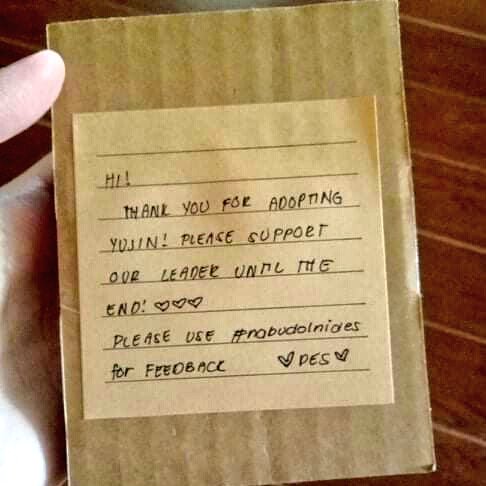 HI!
THANK YOU FOR ADOPTING
YUJIN! PLEASE SUPPORT
OUR LEADER UNTIL THE
END! ♡♡♡
PLEASE USE #nabudolnides
for FEEDBACK ♡DES♡